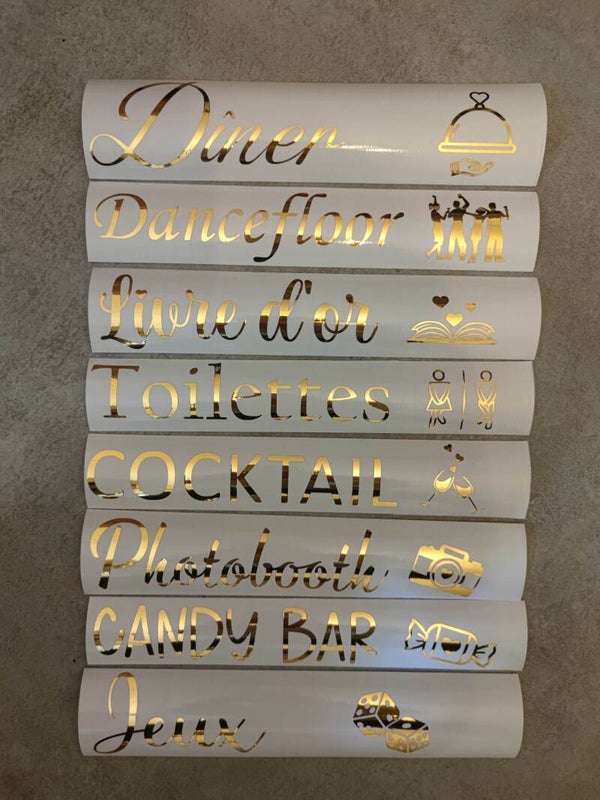 Dîner
Dancefloor
Livre d'or
Toilettes
COCKTAIL
Photobooth
CANDY BAR
Jeux